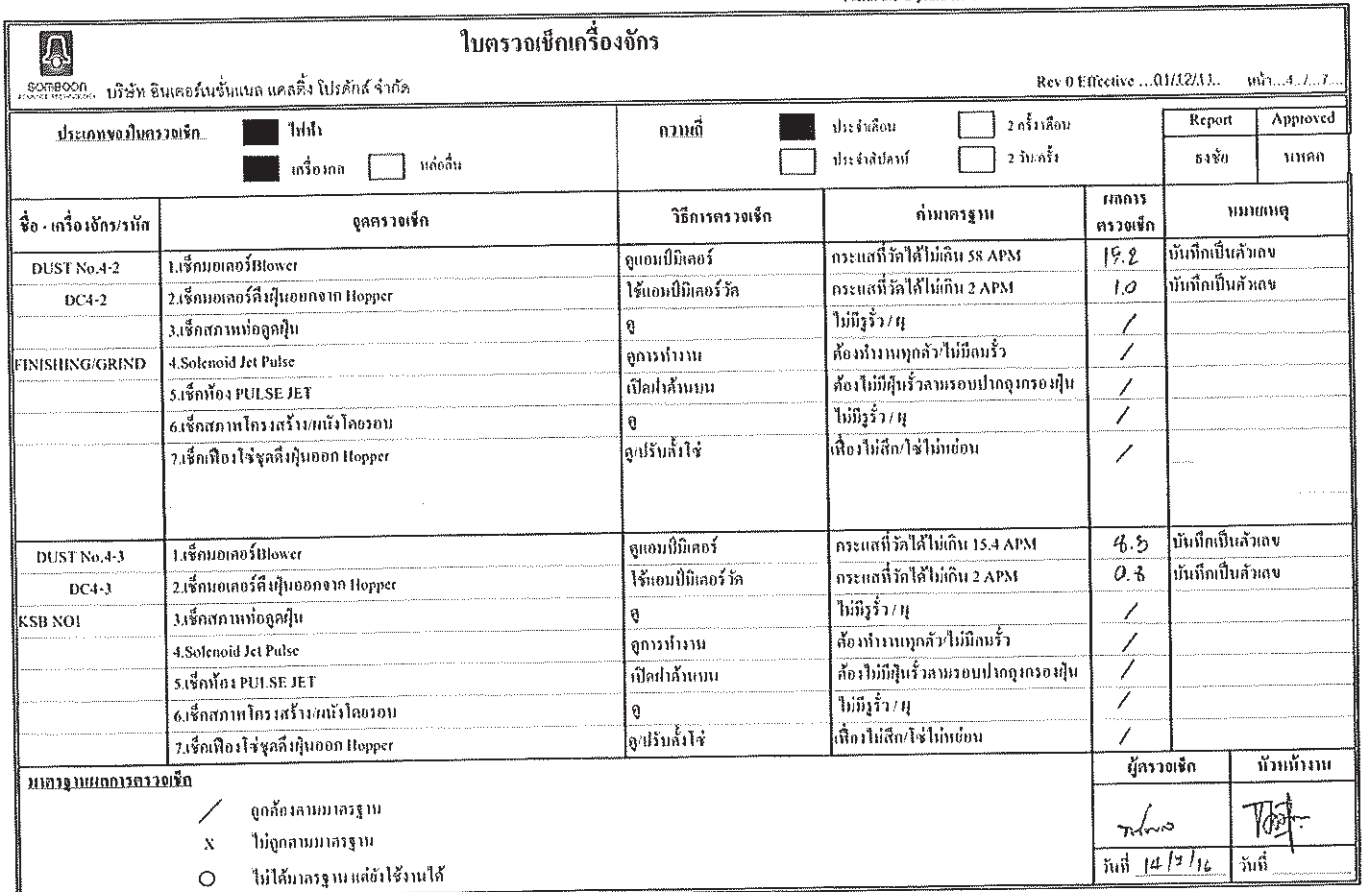 ใบตรวจเช็กเครื่องจักร
SOMBOON
บริษัท อินเตอร์เนชั่นแนล แคสติ้ง โปรดักส์ จำกัด
Rev 0 Effective ...01/12/11.. หน้า...4../...7...
ประเภทของใบตรวจเช็ก ไฟฟ้า ความถี่ ประจำเดือน 2 ครั้ง/เดือน Report Approved
เครื่องกล หล่อลื่น ประจำสัปดาห์ 2 วัน/ครั้ง ธงชัย นพดล
ชื่อ - เครื่องจักร/รหัส จุดตรวจเช็ก วิธีการตรวจเช็ก ค่ามาตรฐาน ผลการตรวจเช็ก หมายเหตุ
DUST No.4-2 1.เช็กมอเตอร์Blower ดูแอมป์มิเตอร์ กระแสที่วัดได้ไม่เกิน 58 APM บันทึกเป็นตัวเลข
DC4-2 2.เช็กมอเตอร์ดึงฝุ่นออกจาก Hopper ใช้แอมป์มิเตอร์วัด กระแสที่วัดได้ไม่เกิน 2 APM 1.0 บันทึกเป็นตัวเลข
3.เช็กสภาพท่อดูดฝุ่น ดู ไม่มีรูรั่ว / ผุ /
FINISHING/GRIND 4.Solenoid Jet Pulse ดูการทำงาน ต้องทำงานทุกตัว/ไม่มีลมรั่ว /
5.เช็กห้อง PULSE JET เปิดฝาด้านบน ต้องไม่มีฝุ่นรั่วตามรอบปากถุงกรองฝุ่น /
6.เช็กสภาพโครงสร้าง/ผนังโดยรอบ ดู ไม่มีรูรั่ว / ผุ /
7.เช็กเฟืองโซ่ชุดดึงฝุ่นออก Hopper ดู/ปรับตั้งโซ่ เฟืองไม่สึก/โซ่ไม่หย่อน /
DUST No.4-3 1.เช็กมอเตอร์Blower ดูแอมป์มิเตอร์ กระแสที่วัดได้ไม่เกิน 15.4 APM บันทึกเป็นตัวเลข
DC4-3 2.เช็กมอเตอร์ดึงฝุ่นออกจาก Hopper ใช้แอมป์มิเตอร์วัด กระแสที่วัดได้ไม่เกิน 2 APM 0.8 บันทึกเป็นตัวเลข
KSB NO1 3.เช็กสภาพท่อดูดฝุ่น ดู ไม่มีรูรั่ว / ผุ /
4.Solenoid Jet Pulse ดูการทำงาน ต้องทำงานทุกตัว/ไม่มีลมรั่ว /
5.เช็กห้อง PULSE JET เปิดฝาด้านบน ต้องไม่มีฝุ่นรั่วตามรอบปากถุงกรองฝุ่น /
6.เช็กสภาพโครงสร้าง/ผนังโดยรอบ ดู ไม่มีรูรั่ว / ผุ /
7.เช็กเฟืองโซ่ชุดดึงฝุ่นออก Hopper ดู/ปรับตั้งโซ่ เฟืองไม่สึก/โซ่ไม่หย่อน /
มาตรฐานผลการตรวจเช็ก ผู้ตรวจเช็ก หัวหน้างาน
/ ถูกต้องตามมาตรฐาน
X ไม่ถูกตามมาตรฐาน
O ไม่ได้มาตรฐาน แต่ยังใช้งานได้
วันที่ 14/7/16 วันที่